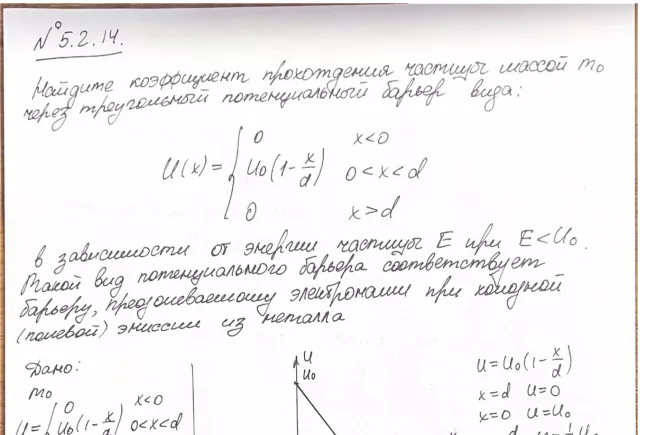 № 5.2.14.
Найдите коэффициент прохождения частицы массой m₀
через треугольный потенциальный барьер вида:
U(x) = { 0 x<0
U₀(1-x/d) 0<x<d
0 x>d
в зависимости от энергии частицы E при E<U₀.
Такой вид потенциального барьера соответствует
барьеру, преодолеваемому электронами при холодной
(полевой) эмиссии из металла
Дано:
m₀
0 x<0
U = { U₀(1-x/d) 0<x<d
U
U₀
U=U₀(1-x/d)
x=d U=0
x=0 U=U₀